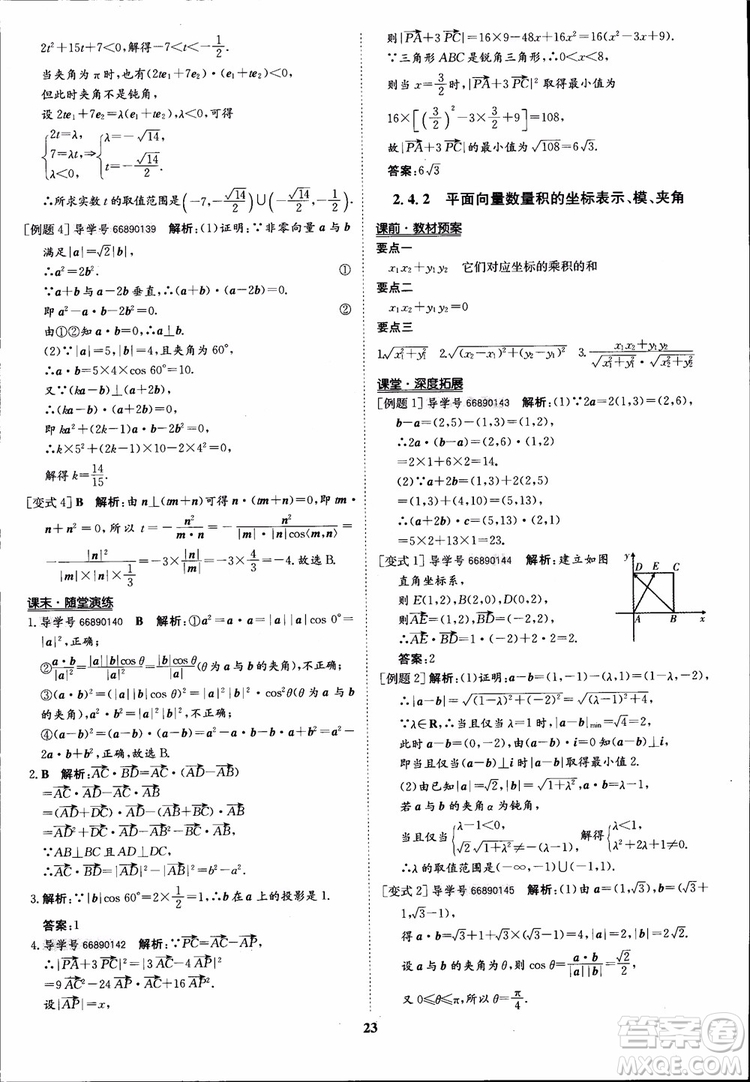 2t²+15t+7<0,解得-7<t<-1/2.
当夹角为π时,也有(2te₁+7e₂)·(e₁+te₂)<0,
但此时夹角不是钝角,
设2te₁+7e₂=λ(e₁+te₂),λ<0,可得
{2t=λ, 7=λt, λ<0, ⇒ {λ=-√14, t=-√14/2.
∴所求实数t的取值范围是(-7,-√14/2)∪(-√14/2,-1/2).
[例题4] 导学号 66890139 解析:(1)证明:∵非零向量a与b
满足|a|=√2|b|,
∴a²=2b². ①
∵a-b与a+2b垂直,∴(a-b)·(a+2b)=0.
即a²+a·b-2b²=0. ②
由①②知a·b=0,∴a⊥b.
(2)∵|a|=5,|b|=4,且夹角为60°,
∴a·b=5×4×cos 60°=10.
∵(ka-b)⊥(a+2b),
∴(ka-b)·(a+2b)=0.
即ka²+(2k-1)a·b-2b²=0.
∴k×5²+(2k-1)×10-2×4²=0.
解得k=14/15.
[变式4] B 解析:由n⊥(tm+n)可得n·(tm+n)=0,即tm·
n+n²=0,所以t=-n²/(m·n)=-n²/(|m|·|n|cos⟨m,n⟩)=
-|n|²/(|m|×|n|×1/3)=-3×|n|/|m|=-3×4/3=-4.故选B.
课末·随堂演练
1. 导学号 66890140 B 解析:①a²=a·a=|a||a|cos 0°=
|a|²,正确;
②a·b/a²=|a||b|cos θ/|a|²=|b|cos θ/|a|(θ为夹角),错误;
③(a·b)²=(|a||b|cos θ)²=|a|²|b|²cos²θ(θ为a与b
的夹角),a²·b²=|a|²·|b|²,错误;
④(a-b)²=(a-b)·(a-b)=a²-a·b-b·a+b²=a²-
2a·b+b²,正确,故选B.
2. D 解析:AC·BD=AC·(BA+AD)
=AC·AD-AC·AB
=(AD+DC)·AD-(AB+BC)·AB
=AD²+DC·AD-AB²-BC·AB
∵AB⊥BC,AD⊥DC,
∴AC·BD=|AD|²-|AB|²=b²-a².
3. 解析:∵|b|cos 60°=2×1/2=1,∴b在a上的投影是1.
答案:1
4. 导学号 66890142 解析:∵PC=AC-AP,
∴|PA+3PC|²=|3AC-4AP|²
=9AC²-24AC·AP+16AP²
设|AP|=x,
则|PA+3PC|=16×9-48x+16x²=16(x²-3x+9)
∵三角形ABC是锐角三角形,∴0<x<4,
则当x=3/2时,|PA+3PC|²取得最小值为
16×[(3/2)²-3×3/2+9]=108,
故|PA+3PC|的最小值为√108=6√3
答案:6√3
2.4.2 平面向量数量积的坐标表示、模、夹角
课前·教材预案
要点一
x₁x₂+y₁y₂ 它们对应坐标的乘积的和
要点二
x₁x₂+y₁y₂=0
要点三
1.√(x₁²+y₁²) 2.√((x₂-x₁)²+(y₂-y₁)²) 3.(x₁x₂+y₁y₂)/(√(x₁²+y₁²)·√(x₂²+y₂²))
课堂·深度拓展
[例题1] 导学号 66890143 解析:(1)∵2a=2(1,3)=(2,6),
b-a=(2,5)-(1,3)=(1,2)
∴2a·(b-a)=(2,6)·(1,2)
=2×1+6×2=14.
(2)∵a+2b=(1,3)+2(2,5)
=(1,3)+(4,10)=(5,13),
∴(a+2b)·b=(5,13)·(2,5)
=5×2+13×5=75.
[变式1] 导学号 66890144 解析:建立如图
直角坐标系,
y D E C A B x
则A(0,0),B(2,0),D(0,2),E(1,2)
则AE=(1,2),BD=(-2,2)
∴AE·BD=1×(-2)+2×2=2.
答案:2
[例题2] 解析:(1)证明:a-b=(1,-1)-(λ,1)=(1-λ,-2)
∴|a-b|=√((1-λ)²+(-2)²)=√((λ-1)²+4)
∵λ∈R,∴当且仅当λ=1时,|a-b|min=√4=2,
此时a-b=(0,-2),∴(a-b)·i=0知(a-b)⊥i,
即当且仅当(a-b)⊥i时|a-b|取得最小值2.
(2)由已知得|a|=√2,|b|=√(1+λ²),a·b=λ-1,
若a与b的夹角α为钝角,
则{λ-1<0, √2√(1+λ²)≠1-λ, 解得{λ<1, λ²+2λ+1≠0,
∴λ的取值范围为(-∞,-1)∪(-1,1).
[变式2] 导学号 66890145 解析:由a=(1,√3),b=(√3+1,
√3-1)
得a·b=√3+1+√3(√3-1)=4,|a|=2,|b|=2√2
设a与b的夹角为θ,则cos θ=a·b/(|a||b|)=√2/2,
又0≤θ≤π,所以θ=π/4.
23
答案圈